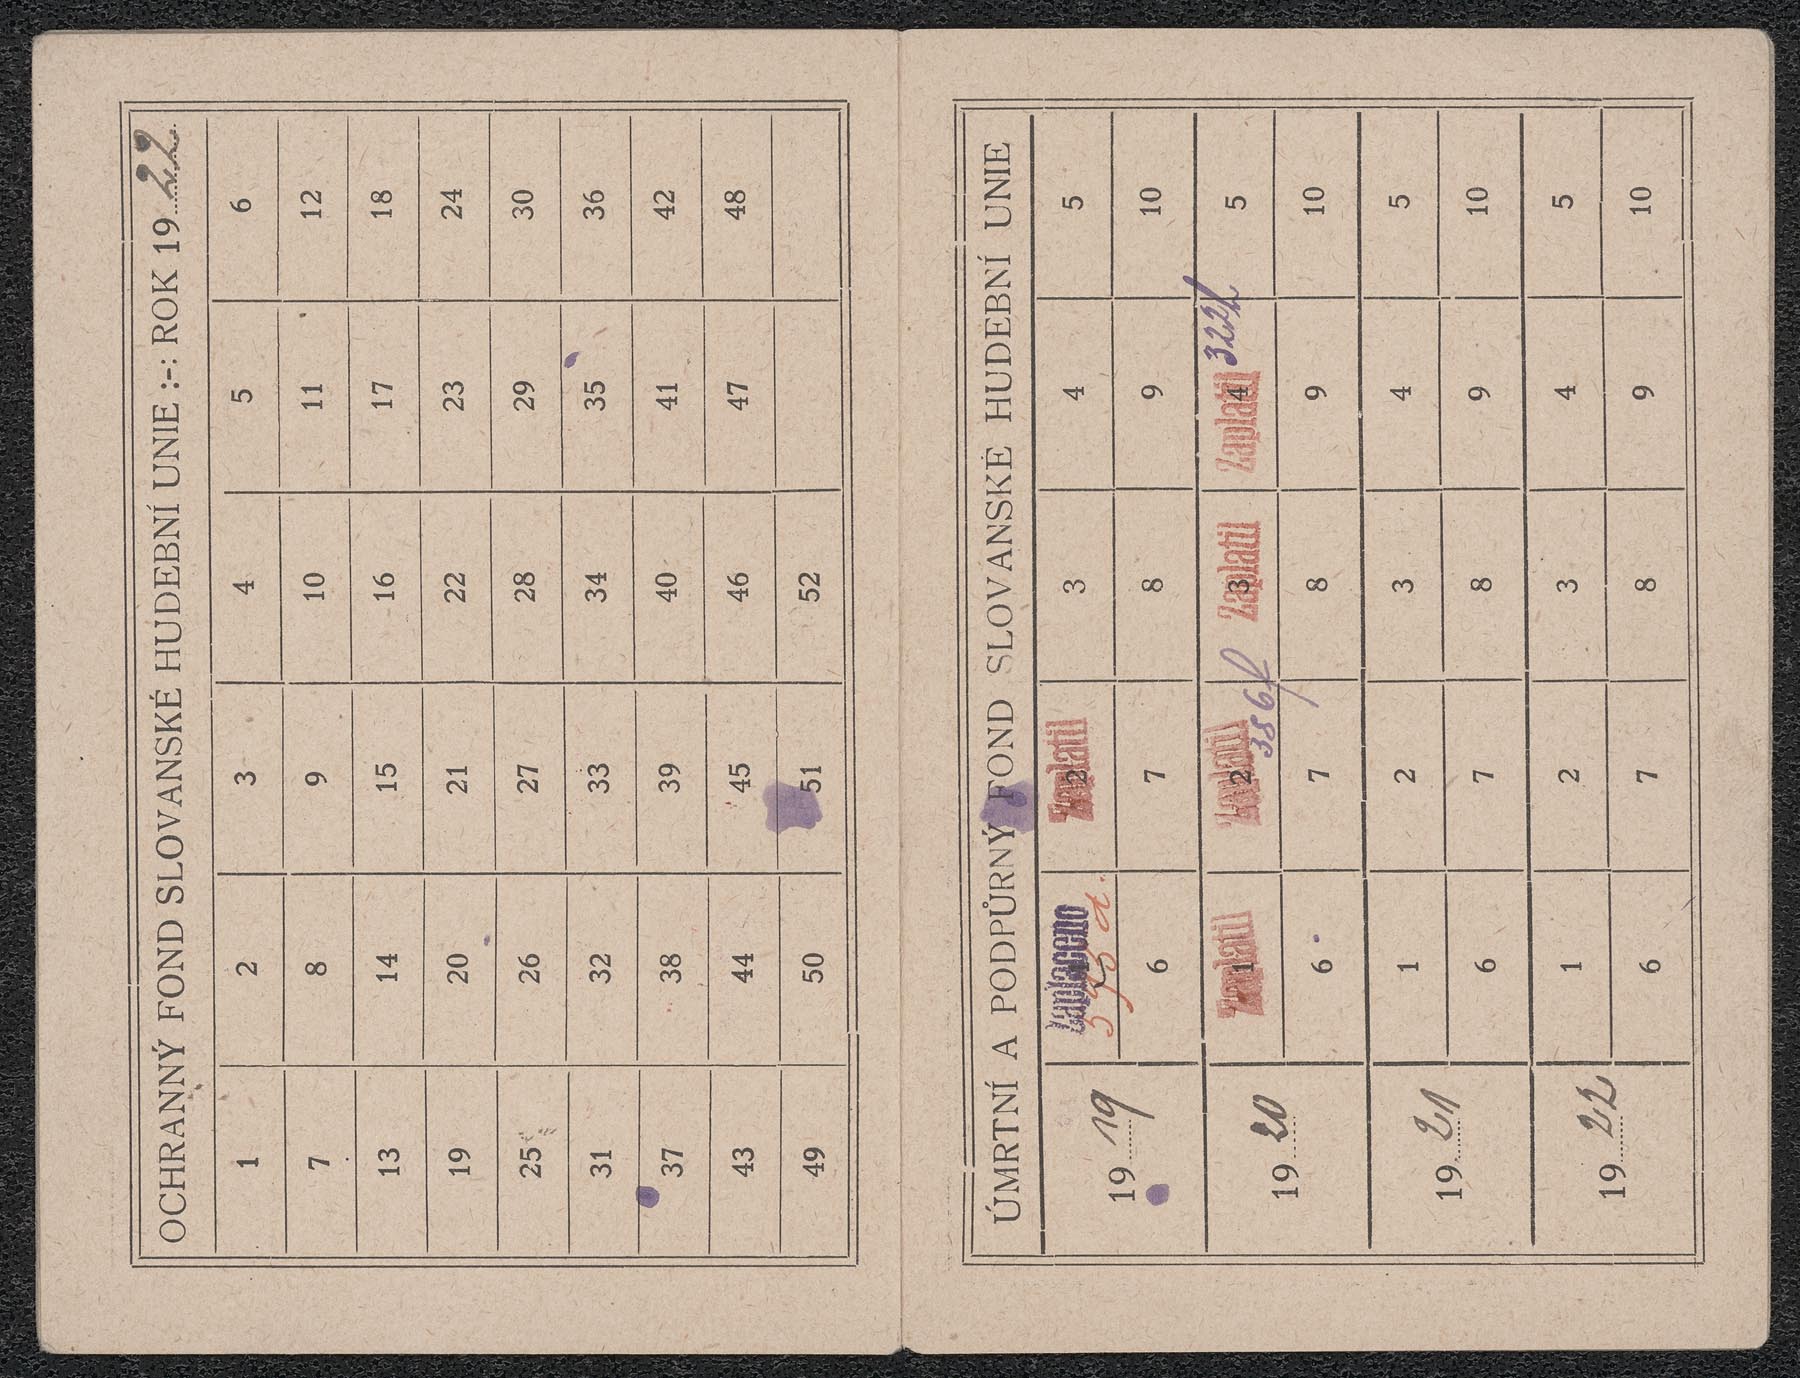 OCHRANNÝ FOND SLOVANSKÉ HUDEBNÍ UNIE :-: ROK 1922
1 2 3 4 5 6
7 8 9 10 11 12
13 14 15 16 17 18
19 20 21 22 23 24
25 26 27 28 29 30
31 32 33 34 35 36
37 38 39 40 41 42
43 44 45 46 47 48
49 50 51 52
ÚMRTNÍ A PODPŮRNÝ FOND SLOVANSKÉ HUDEBNÍ UNIE
1919
1 Zaplaceno 2 Zaplatil 3 4 5
6 7 8 9 10
1920
1 Zaplatil 2 Zaplatil 3 Zaplatil 4 Zaplatil 322 5
386
6 7 8 9 10
1921
1 2 3 4 5
6 7 8 9 10
1922
1 2 3 4 5
6 7 8 9 10